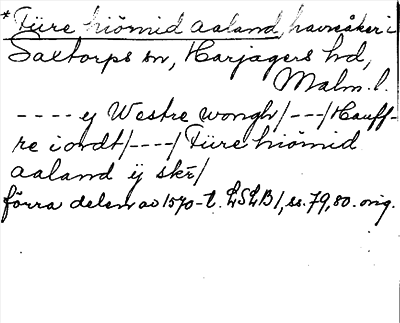 *Füre hiömid aaland, havreåker i
Saxtorps sn, Harjagers hd,
Malm. l.
---- ey Westre wongh/---/Hauff-
re i ordt/----/Füre hiömid
aaland ÿ skr/
förra delen av 1570-t. LSLB1, ss. 79, 80. orig.